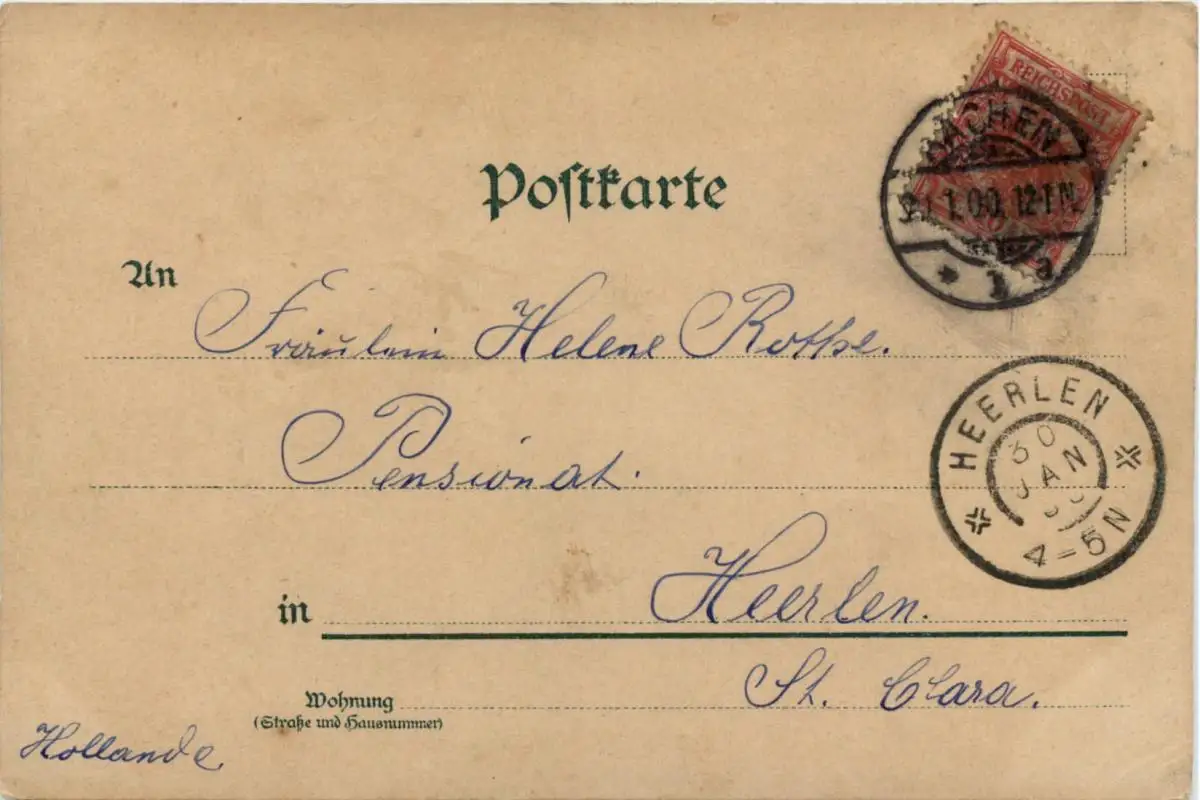 REICHSPOST
AACHEN
1.00. 12-1N.
* 1 a
Postkarte
An
Fräulein Helene Rothe.
Pensionat.
HEERLEN
30
JAN
4-5N
in Heerlen.
St. Clara.
Wohnung
(Straße und Hausnummer)
Hollande.